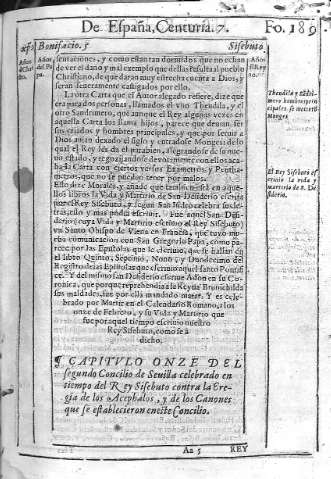 De España, Centuria. 7.
Fo. 189
Bonifacio. 5
Sisebuto
Años del Pa pa.
Años del Rey no.
sentaciones, y como estan tan dormidos que no echan
de ver el daño y mal exemplo que dellas resulta al pueblo
Christiano, de que daran muy estrecha cuenta a Dios, y
seran seueramente castigados por ello.
La otra Carta que el Autor alegado refiere, dize que
era para dos personas, llamados el vno Theudila, y el
otro Sandrimero, que aunque el Rey algunas vezes en
aquella Carta los llama hijos, parece que deuian ser
sus criados y hombres principales, y que por seruir a
Dios auian dexado el siglo y entradose Monges: de lo
qual el Rey les da el parabien, alegrandose de su nue-
uo estado, y regozijandose deuotamente con ellos aca-
ba la Carta con ciertos versos Exametros, y Penta-
metros, que no se pueden tener por malos.
Esto dize Morales, y añade que tambien està en aque-
llos libros la Vida y Martirio de San Desiderio escrita
por el Rey Sisebuto, y segun San Isidro celebra sus le-
tras, esto y mas podia escriuir. Fue aquel San Desi-
derio (cuya vida y Martirio escriuio el Rey Sisebuto)
vn Santo Obispo de Viena en Francia, que tuuo mu-
cha comunicacion con San Gregorio Papa, como pa-
rece por las Epistolas que le escriuio, que se hallan en
el libro Quinto, Septimo, Nono, y Duodecimo del
Registro de las Epistolas que escriuio aquel Santo Pontifi-
ce. Y del mismo san Desiderio escriue Adon en su Co-
ronica, que porque reprehendia a la Reyna Brunichilda
sus maldades, fue por ella mandado matar. Y es cele-
brado por Martir en el Calendario Romano, a los
onze de Febrero, y su Vida y Martirio que
fue por aquel tiempo escriuio nuestro
Rey Sisebuto, como se à
dicho.
Theudila y Sandri-
mero hombres prin-
cipales, se metierō
Monges
El Rey Sisebuto es-
criuio la vida y
martirio de S. De-
siderio.
¶ CAPITVLO ONZE DEL
segundo Concilio de Seuilla celebrado en
tiempo del Rey Sisebuto contra la Ere-
gia de los Acephalos, y de los Canones
que se establecieron en este Concilio.
Aa 5
REY